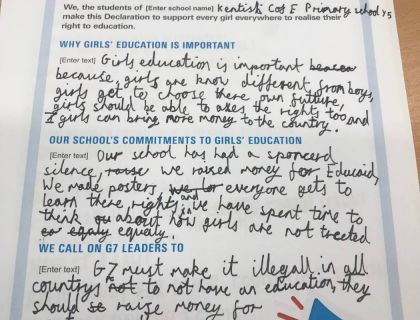 We, the students of [Enter school name] Kentish CofE Primary school Y5
make this Declaration to support every girl everywhere to realise their
right to education.
WHY GIRLS' EDUCATION IS IMPORTANT
[Enter text] Girls education is important
because, girls are know different from boys,
girls get to choose there own future,
girls should be able to axes the rights too and
girls can bring more money to the country.
OUR SCHOOL'S COMMITMENTS TO GIRLS' EDUCATION
[Enter text] Our school has had a sponcerd
silence, raise we raised money for Educaid,
We made posters, everyone gets to
learn there rights and we have spent time to
think about how girls are not treated
equaly equaly.
WE CALL ON G7 LEADERS TO
[Enter text] G7 must make it illegall in all
countrys not to not have an education, they
should raise money for